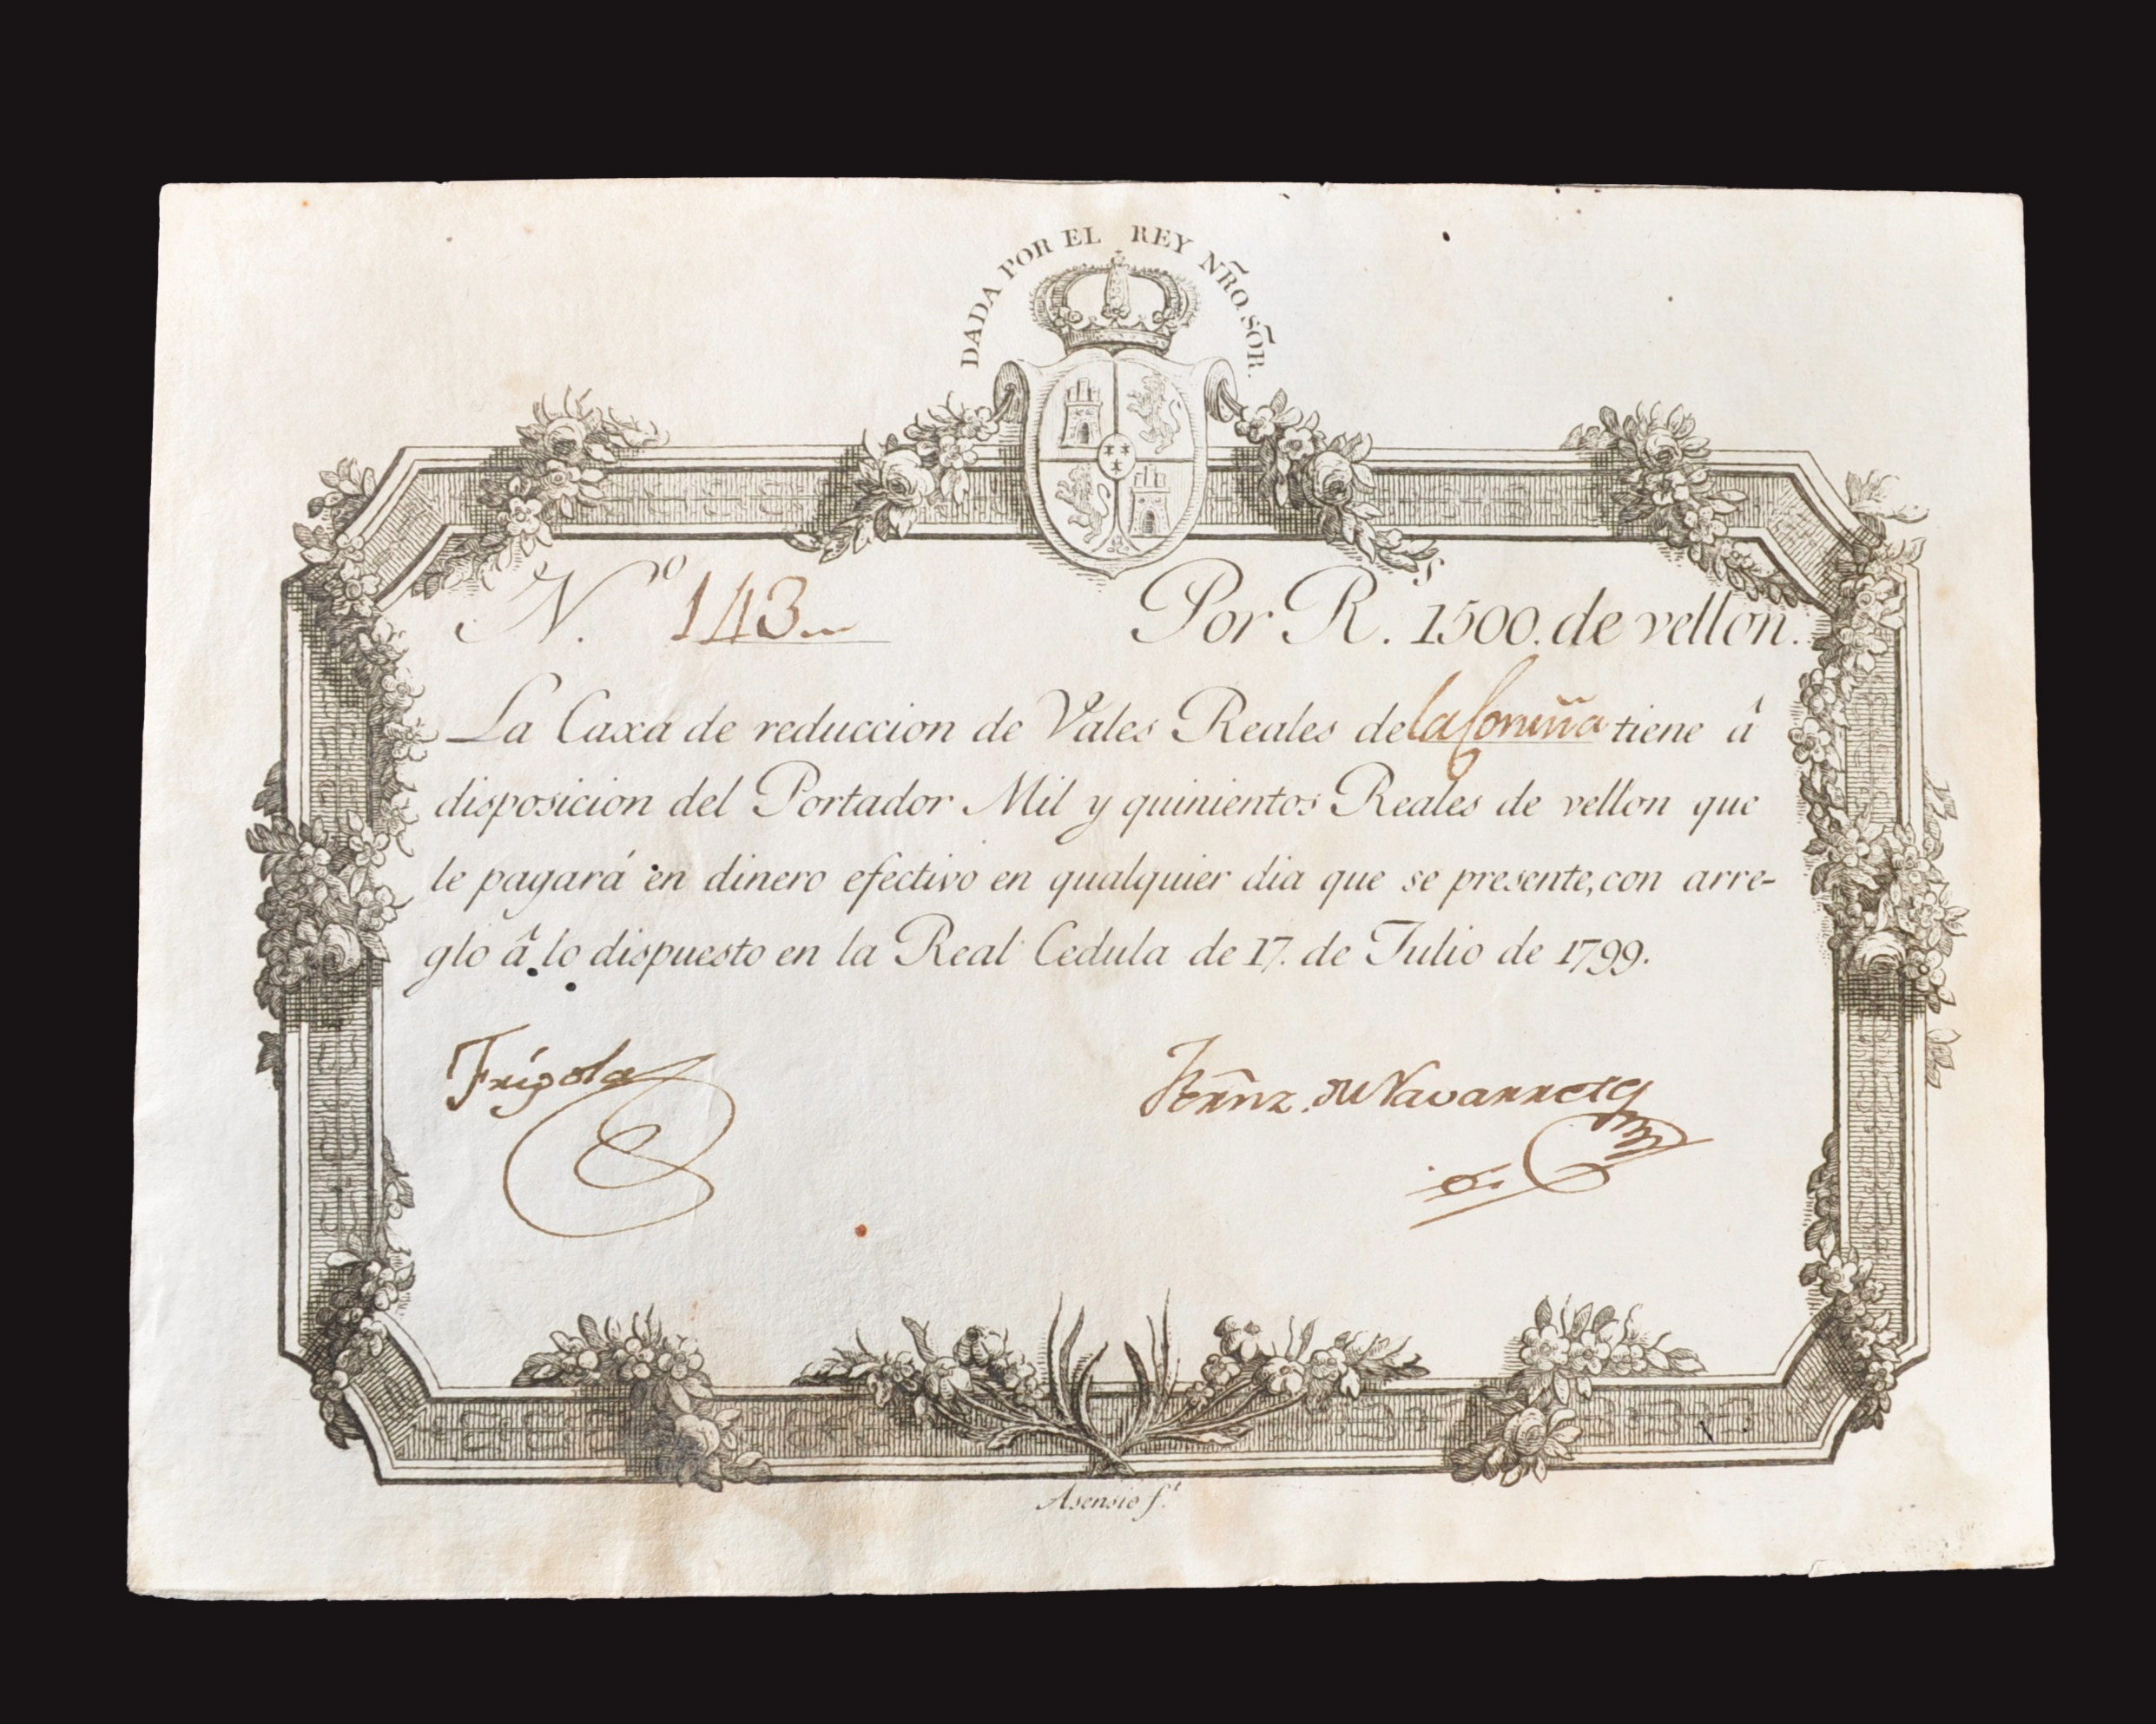 DADA POR EL REY NR̃O. SÕR.
N.º 143
Por R.ˢ 1500. de vellon.
La Caxa de reduccion de Vales Reales de la Coruña tiene â
disposicion del Portador Mil y quinientos Reales de vellon que
le pagará en dinero efectivo en qualquier dia que se presente, con arre-
glo â lo dispuesto en la Real Cedula de 17. de Julio de 1799.
Frigola
Fernz. de Navarrete
Asensio f.ᵗ